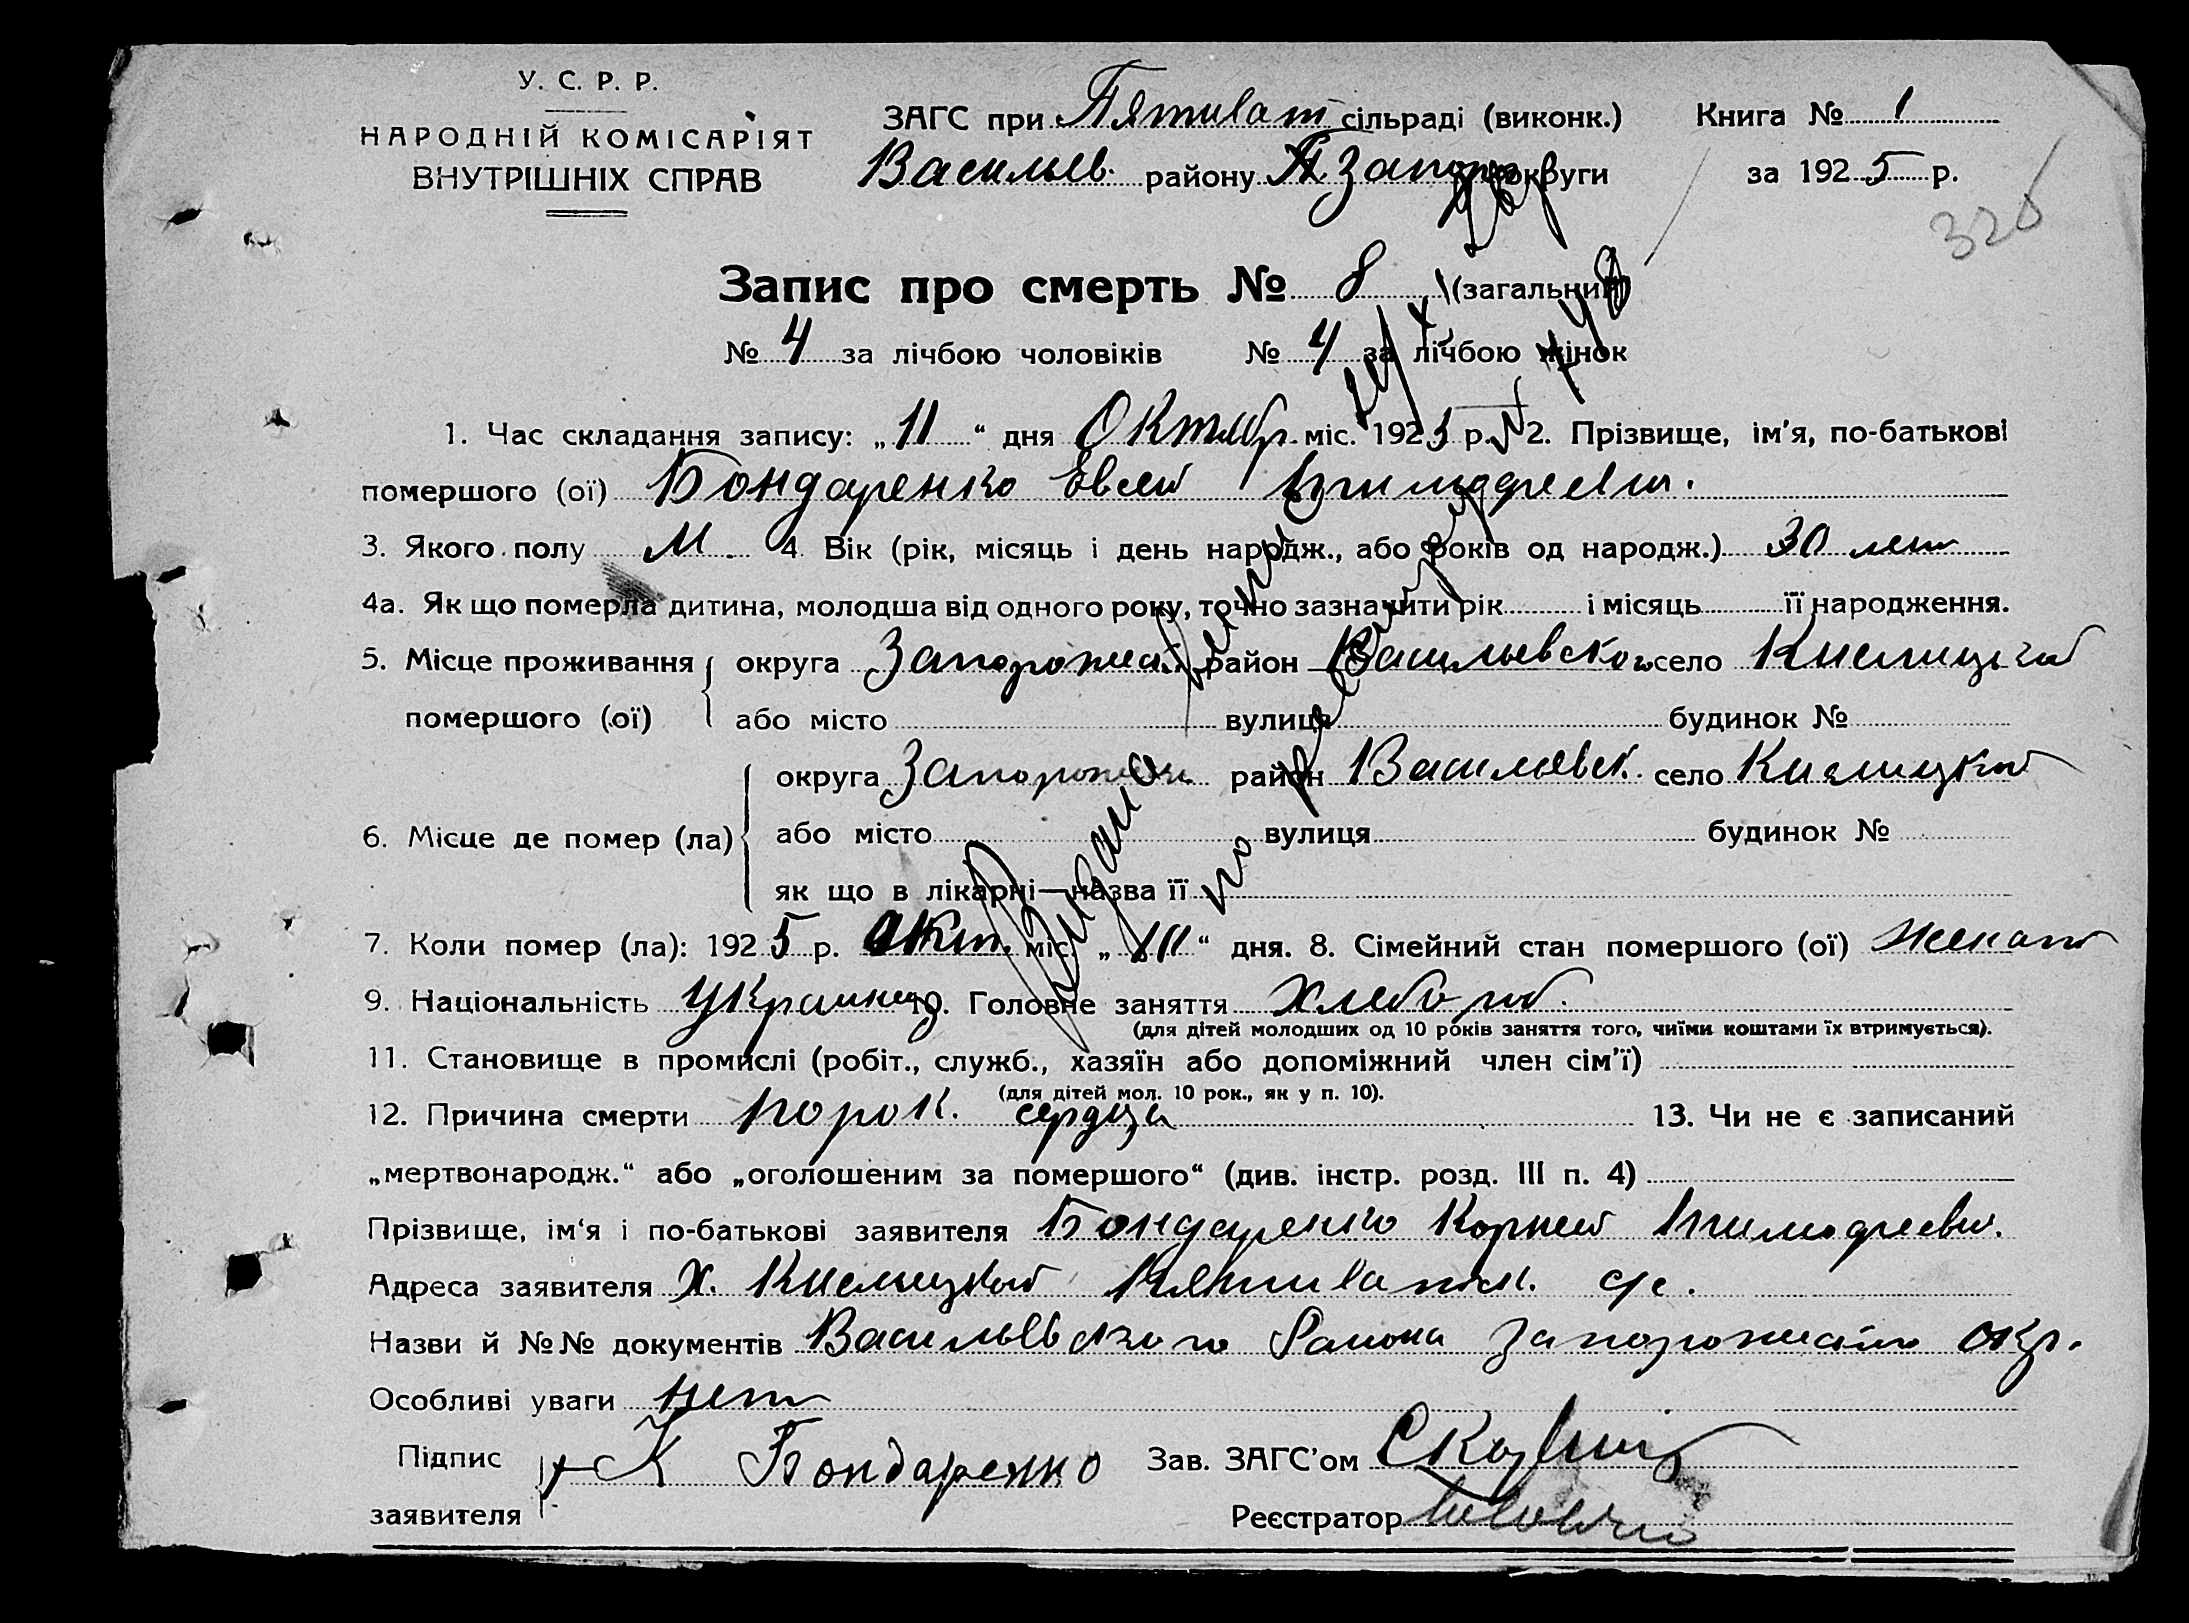 У. С. Р. Р.
НАРОДНІЙ КОМІСАРІЯТ
ВНУТРІШНІХ СПРАВ
ЗАГС при Пятихат сільраді (виконк.) Книга № 1
Васильев. району Запор округи за 1925 р.
326
Запис про смерть № 8 (загальний)
№ 4 за лічбою чоловіків № 4 за лічбою жінок
1. Час складання запису: „11“ дня Октябр. міс. 1925 р. 2. Прізвище, ім'я, по-батькові
помершого (ої) Бондаренко Евсей
3. Якого полу М. 4. Вік (рік, місяць і день народж., або років од народж.) 30 лет
4а. Як що померла дитина, молодша від одного року, точно зазначити рік і місяць її народження.
5. Місце проживання округа Запорожск. район Васильевского село
помершого (ої) або місто вулиця будинок №
округа Запорожск. район Васильевск. село
6. Місце де помер (ла) або місто вулиця будинок №
як що в лікарні—назва її
7. Коли помер (ла): 1925 р. Окт. міс. „10“ дня. 8. Сімейний стан помершого (ої) женат
9. Національність Украинец 10. Головне заняття Хлебороб.
(для дітей молодших од 10 років заняття того, чиїми коштами їх втримується).
11. Становище в промислі (робіт., служб., хазяїн або допоміжний член сім'ї)
(для дітей мол. 10 рок., як у п. 10).
12. Причина смерти порок. сердца 13. Чи не є записаний
„мертвонародж.“ або „оголошеним за помершого“ (див. інстр. розд. III п. 4)
Прізвище, ім'я і по-батькові заявителя Бондаренко Корней
Адреса заявителя Х. с/с.
Назви й №№ документів Васильевского Района Запорожского окр.
Особливі уваги нет
Підпис К Бондаренко Зав. ЗАГС'ом
заявителя Реєстратор